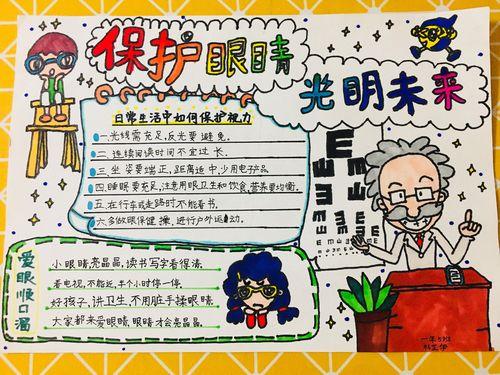 保护眼睛
光明未来
日常生活中如何保护视力
一.光线需充足,反光要避免.
二.连续阅读时间不宜过长.
三.坐姿要端正,距离适中,少用电子产品
四.睡眠要充足,注意用眼卫生和饮食,营养要均衡.
五.在行车或走路时不能看书.
六.多做眼保健操,进行户外运动.
爱眼顺口溜
小眼睛亮晶晶,读书写字看得清.
看电视,不能近,半个小时停一停.
好孩子,讲卫生,不用脏手揉眼睛.
大家都来爱眼睛,眼睛才会亮晶晶.